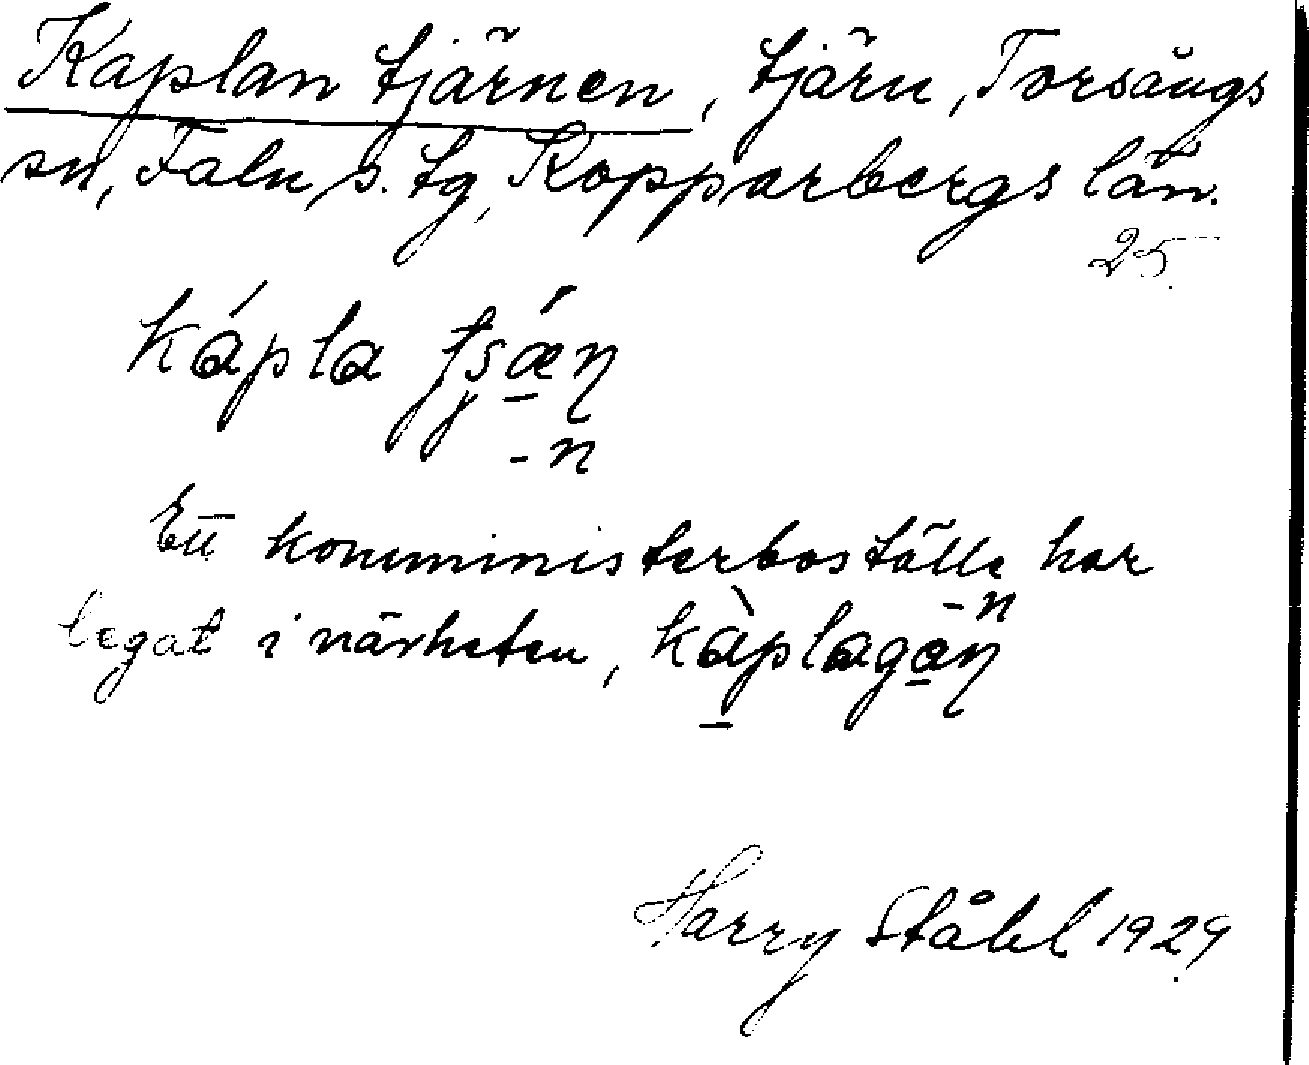 Kaplan tjärnen, tjärn, Torsångs
sn, Falu s. tg, Kopparbergs län.
25.
kápla
-n
Ett komministerboställe har
-n
legat i närheten,
Harry Ståhl 1929